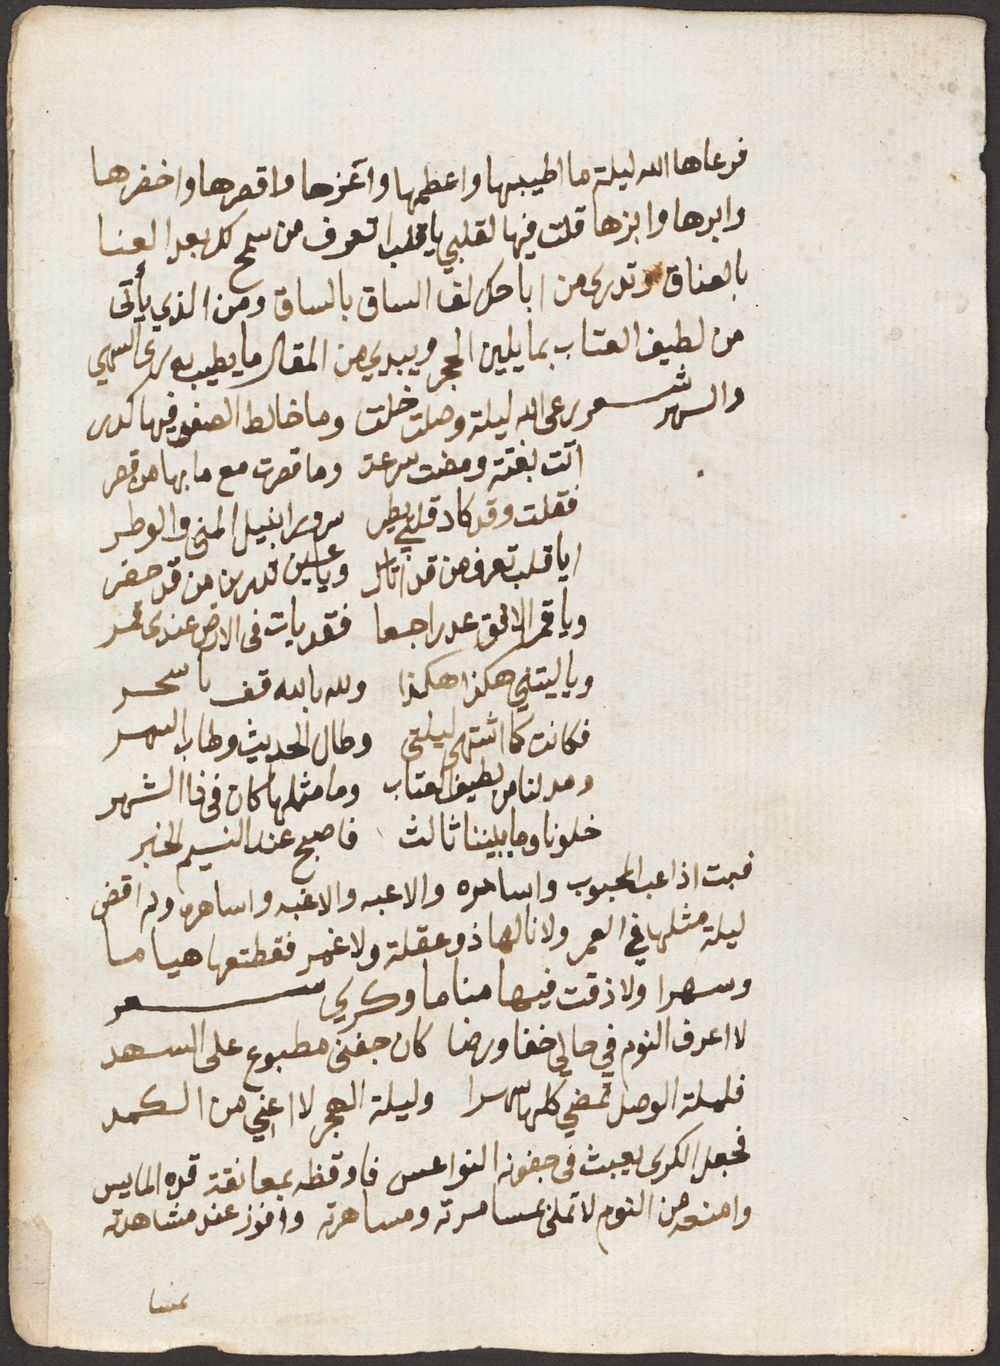 فرعاها الله ليلة ما اطيبها واعظمها واعزها واقصرها واخضرها
وابرها وابزها قلت فيها لقلبي يا قلب اتعرف من سمح لك بعد العنا
بالعناق وتدرى من اباح لك لف الساق بالساق ومن الذي يأتى
من لطيف العتاب بما يلين الحجر ويبدي من المقال ما يطيب به رعى السهى
والسهر شعر رعى الله ليلة وصل خلت وما خالط الصفو فيها كدر
اتت بغتة ومضت سرعة وما قصرت مع ما بها من قصر
فقلت وقد كاد قلبي يطير سرورا بنيل المنى والوطر
ايا قلب تعرف من قد اتاك ويا عين تدرين من قد حضر
ويا قمر الافق عد راجعا فقد بات فى الارض عندى قمر
ويا ليتني هكذا هكذا والله بالله قف يا سحر
فكانت كما اشتهى ليلتي وطال الحديث وطاب السهر
ومر لنا من لطيف العتاب وما مثلها كان فى ذا الشهر
خلونا وما بيننا ثالث فاصبح عند النسيم الخبر
فبت اذاعب المحبوب واسامره والاعبه والاغبه واساهره ولم اقض
ليلة مثلها في العمر ولا نالها ذو عقلة ولا غمر فقطعتها هياما
وسهرا ولا ذقت فيها مناما وكرى شعر
لا اعرف النوم في حالي جفا ورضا كان جفنى مطبوع على السهد
فليلة الوصل تمضي كلها سمرا وليلة الهجر لا اغفي من الكمد
فجعل الكرى يعبث فى جفونه النواعس فاوقظه بمعانقة قده المايس
وامنعه من النوم لاتملى بمسامرته ومساهرته وافوز عند مشاهدته